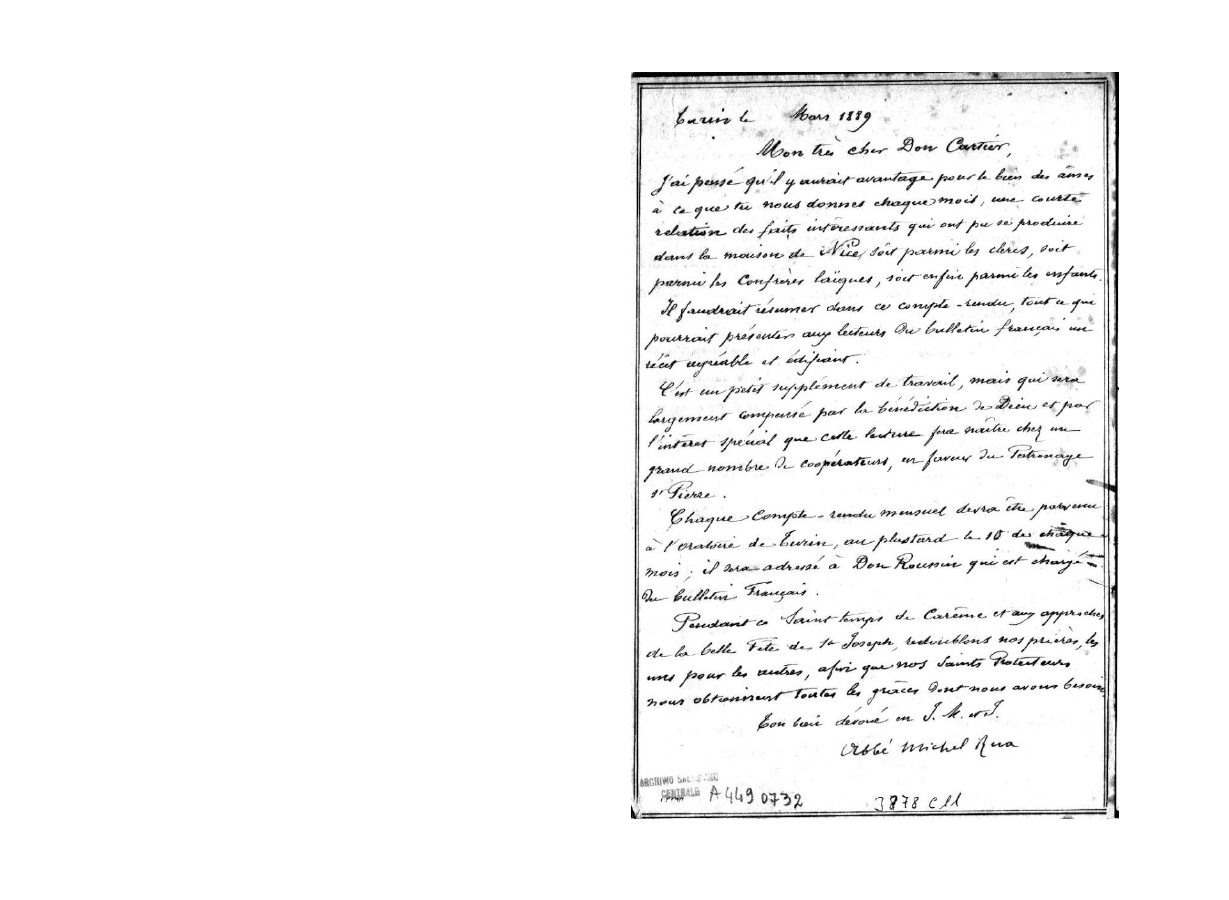 Turin le Mars 1889
Mon très cher Don Cartier,
J'ai pensé qu'il y aurait avantage pour le bien des âmes
à ce que tu nous donnes chaque mois, une courte
relation des faits intéressants qui ont pu se produire
dans la maison de Nice, soit parmi les clercs, soit
parmi les Confrères laïques, soit enfin parmi les enfants.
Il faudrait résumer dans ce compte-rendu, tout ce qui
pourrait présenter aux lecteurs du bulletin français un
récit agréable et édifiant.
C'est un petit supplément de travail, mais qui sera
largement compensé par la bénédiction de Dieu et par
l'intérêt spécial que cette lecture fera naître chez un
grand nombre de coopérateurs, en faveur du Patronage
St Pierre.
Chaque compte-rendu mensuel devra être parvenu
à l'oratoire de Turin, au plus tard le 10 de chaque
mois; il sera adressé à Don Roussin qui est chargé
du bulletin Français.
Pendant ce Saint temps de Carême et aux approches
de la belle Fête de St Joseph, redoublons nos prières, les
uns pour les autres, afin que nos Saints Protecteurs
nous obtiennent toutes les grâces dont nous avons besoin.
Ton bien dévoué en J. M. et J.
Abbé Michel Rua
ARCHIVIO SALESIANO
CENTRALE
A 449 0732
3878 C11